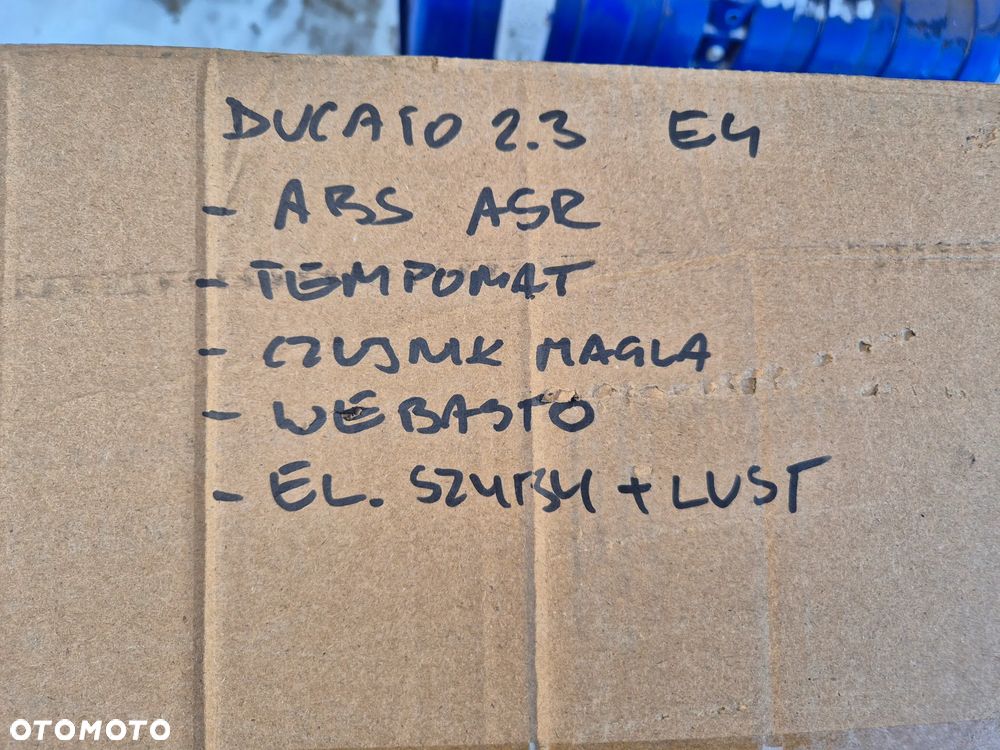 DUCATO 2.3 E4
- ABS ASR
- TEMPOMAT
- CZUJNIK MAGLA
- WEBASTO
- EL. SZYBY + LUST
OTOMOTO